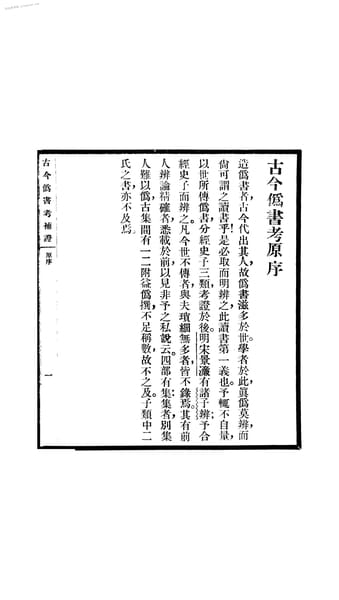 古今僞書考原序
造僞書者古今代出其人故僞書滋多於世學者於此眞僞莫辨而
尙可謂之讀書乎是必取而明辨之此讀書第一義也予輒不自量
以世所傳僞書分經史子三類考證於後明宋景濂有諸子辨予合
經史子而辨之凡今世不傳者與夫瑣細無多者皆不錄焉其有前
人辨論精確者悉載於前以見非予之私說云四部有集集者別集
人難以僞古集間有一二附益僞撰不足稱數故不之及子類中二
氏之書亦不及焉
古今僞書考補證
原序
一